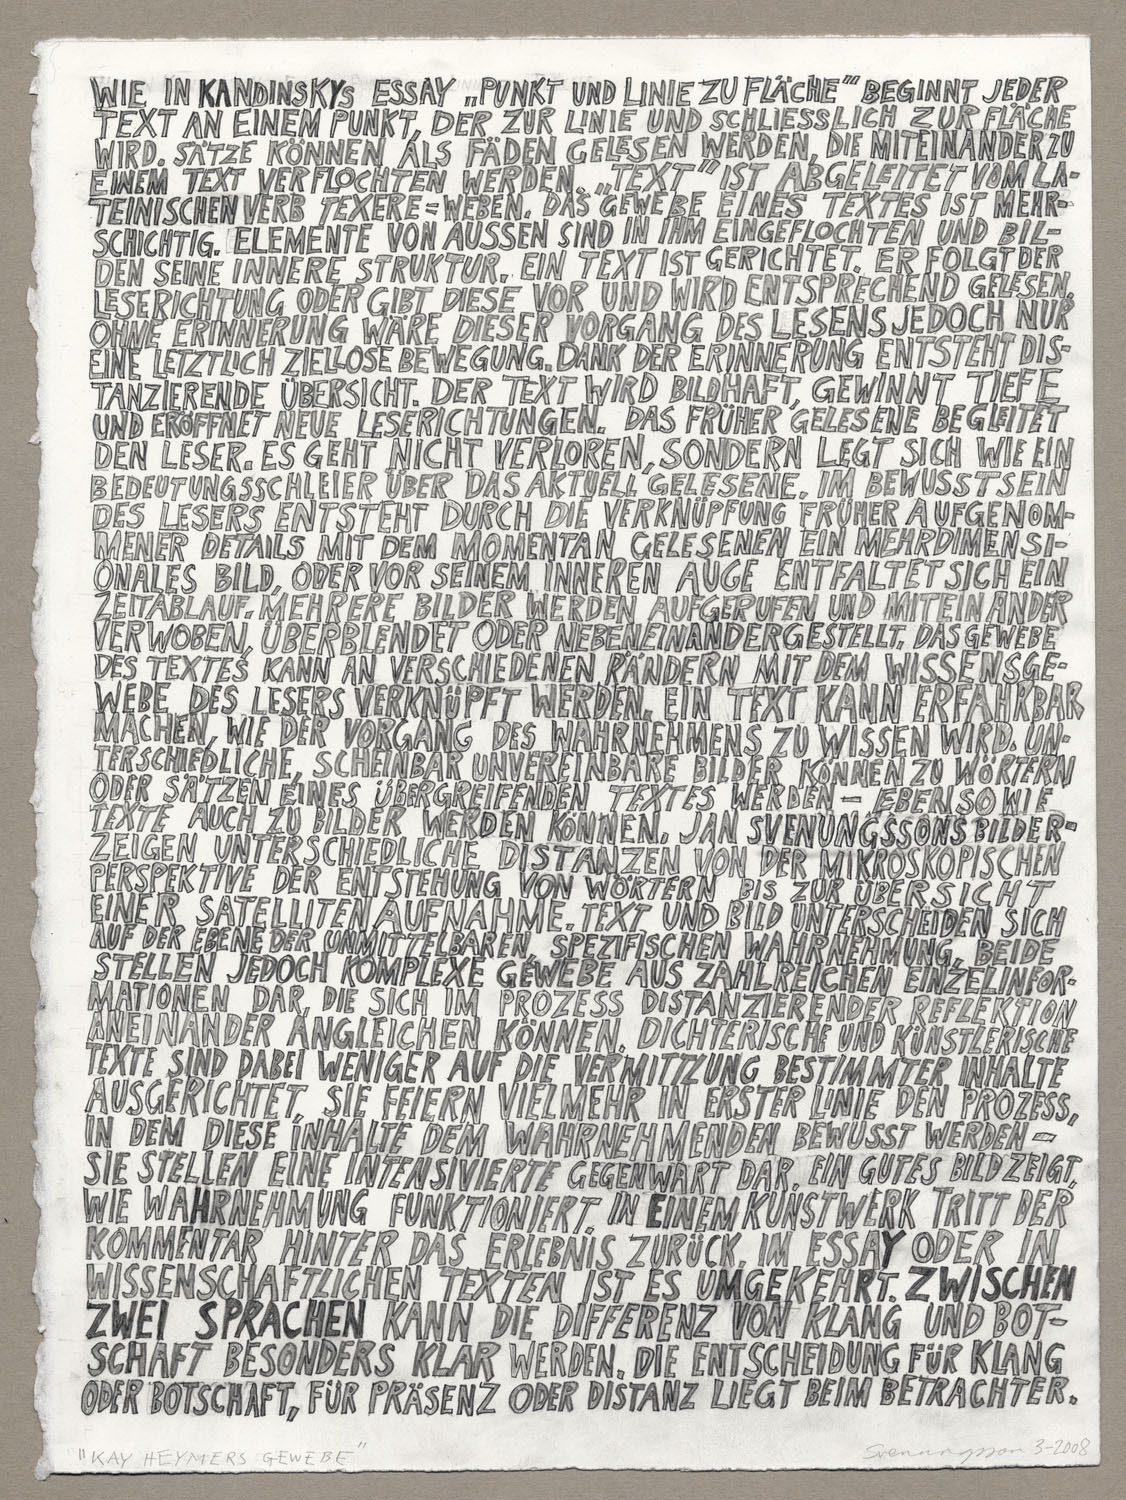 WIE IN KANDINSKYs ESSAY „PUNKT UND LINIE ZU FLÄCHE" BEGINNT JEDER
TEXT AN EINEM PUNKT, DER ZUR LINIE UND SCHLIESSLICH ZUR FLÄCHE
WIRD. SÄTZE KÖNNEN ALS FÄDEN GELESEN WERDEN, DIE MITEINANDER ZU
EINEM TEXT VERFLOCHTEN WERDEN. „TEXT" IST ABGELEITET VOM LA-
TEINISCHEN VERB TEXERE = WEBEN. DAS GEWEBE EINES TEXTES IST MEHR-
SCHICHTIG. ELEMENTE VON AUSSEN SIND IN IHM EINGEFLOCHTEN UND BIL-
DEN SEINE INNERE STRUKTUR. EIN TEXT IST GERICHTET. ER FOLGT DER
LESERICHTUNG ODER GIBT DIESE VOR UND WIRD ENTSPRECHEND GELESEN.
OHNE ERINNERUNG WÄRE DIESER VORGANG DES LESENS JEDOCH NUR
EINE LETZTLICH ZIELLOSE BEWEGUNG. DANK DER ERINNERUNG ENTSTEHT DIS-
TANZIERENDE ÜBERSICHT. DER TEXT WIRD BILDHAFT, GEWINNT TIEFE
UND ERÖFFNET NEUE LESERICHTUNGEN. DAS FRÜHER GELESENE BEGLEITET
DEN LESER. ES GEHT NICHT VERLOREN, SONDERN LEGT SICH WIE EIN
BEDEUTUNGSSCHLEIER ÜBER DAS AKTUELL GELESENE. IM BEWUSSTSEIN
DES LESERS ENTSTEHT DURCH DIE VERKNÜPFUNG FRÜHER AUFGENOM-
MENER DETAILS MIT DEM MOMENTAN GELESENEN EIN MEHRDIMENSI-
ONALES BILD, ODER VOR SEINEM INNEREN AUGE ENTFALTET SICH EIN
ZEITABLAUF. MEHRERE BILDER WERDEN AUFGERUFEN UND MITEINANDER
VERWOBEN, ÜBERBLENDET ODER NEBENEINANDERGESTELLT. DAS GEWEBE
DES TEXTES KANN AN VERSCHIEDENEN RÄNDERN MIT DEM WISSENSGE-
WEBE DES LESERS VERKNÜPFT WERDEN. EIN TEXT KANN ERFAHRBAR
MACHEN, WIE DER VORGANG DES WAHRNEHMENS ZU WISSEN WIRD. UN-
TERSCHIEDLICHE, SCHEINBAR UNVEREINBARE BILDER KÖNNEN ZU WÖRTERN
ODER SÄTZEN EINES ÜBERGREIFENDEN TEXTES WERDEN – EBENSO WIE
TEXTE AUCH ZU BILDER WERDEN KÖNNEN. JAN SVENUNGSSONS BILDER-
ZEIGEN UNTERSCHIEDLICHE DISTANZEN VON DER MIKROSKOPISCHEN
PERSPEKTIVE DER ENTSTEHUNG VON WÖRTERN BIS ZUR ÜBERSICHT
EINER SATELLITENAUFNAHME. TEXT UND BILD UNTERSCHEIDEN SICH
AUF DER EBENE DER UNMITTELBAREN, SPEZIFISCHEN WAHRNEHMUNG, BEIDE
STELLEN JEDOCH KOMPLEXE GEWEBE AUS ZAHLREICHEN EINZELINFOR-
MATIONEN DAR, DIE SICH IM PROZESS DISTANZIERENDER REFLEKTION
ANEINANDER ANGLEICHEN KÖNNEN. DICHTERISCHE UND KÜNSTLERISCHE
TEXTE SIND DABEI WENIGER AUF DIE VERMITTLUNG BESTIMMTER INHALTE
AUSGERICHTET, SIE FEIERN VIELMEHR IN ERSTER LINIE DEN PROZESS,
IN DEM DIESE INHALTE DEM WAHRNEHMENDEN BEWUSST WERDEN –
SIE STELLEN EINE INTENSIVIERTE GEGENWART DAR. EIN GUTES BILD ZEIGT,
WIE WAHRNEHMUNG FUNKTIONIERT. IN EINEM KUNSTWERK TRITT DER
KOMMENTAR HINTER DAS ERLEBNIS ZURÜCK, IM ESSAY ODER IN
WISSENSCHAFTLICHEN TEXTEN IST ES UMGEKEHRT. ZWISCHEN
ZWEI SPRACHEN KANN DIE DIFFERENZ VON KLANG UND BOT-
SCHAFT BESONDERS KLAR WERDEN. DIE ENTSCHEIDUNG FÜR KLANG
ODER BOTSCHAFT, FÜR PRÄSENZ ODER DISTANZ LIEGT BEIM BETRACHTER.
"KAY HEYMERS GEWEBE"
Svenungsson 3-2008